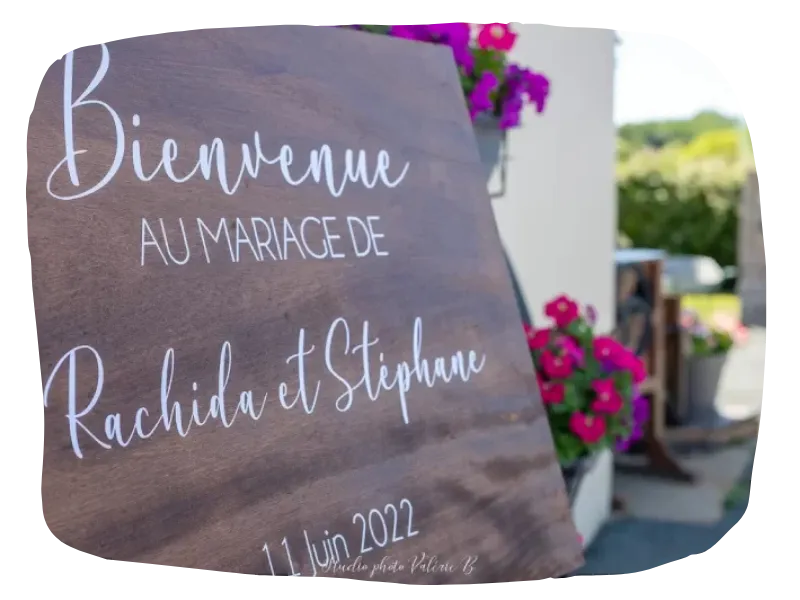 Bienvenue
AU MARIAGE DE
Rachida et Stéphane
11 Juin 2022
Studio photo Valérie B